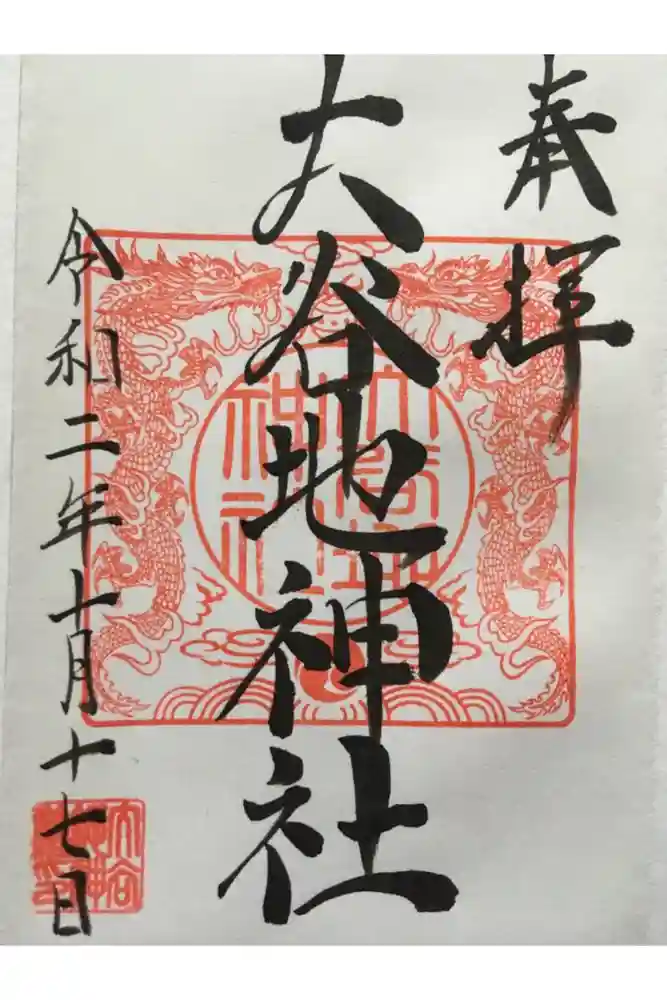 奉拝
大谷地神社
令和二年十月十七日
大谷地神社